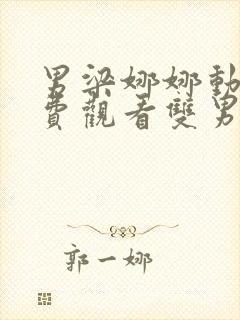 男梁娜娜動
費觀看雙男
郭一娜